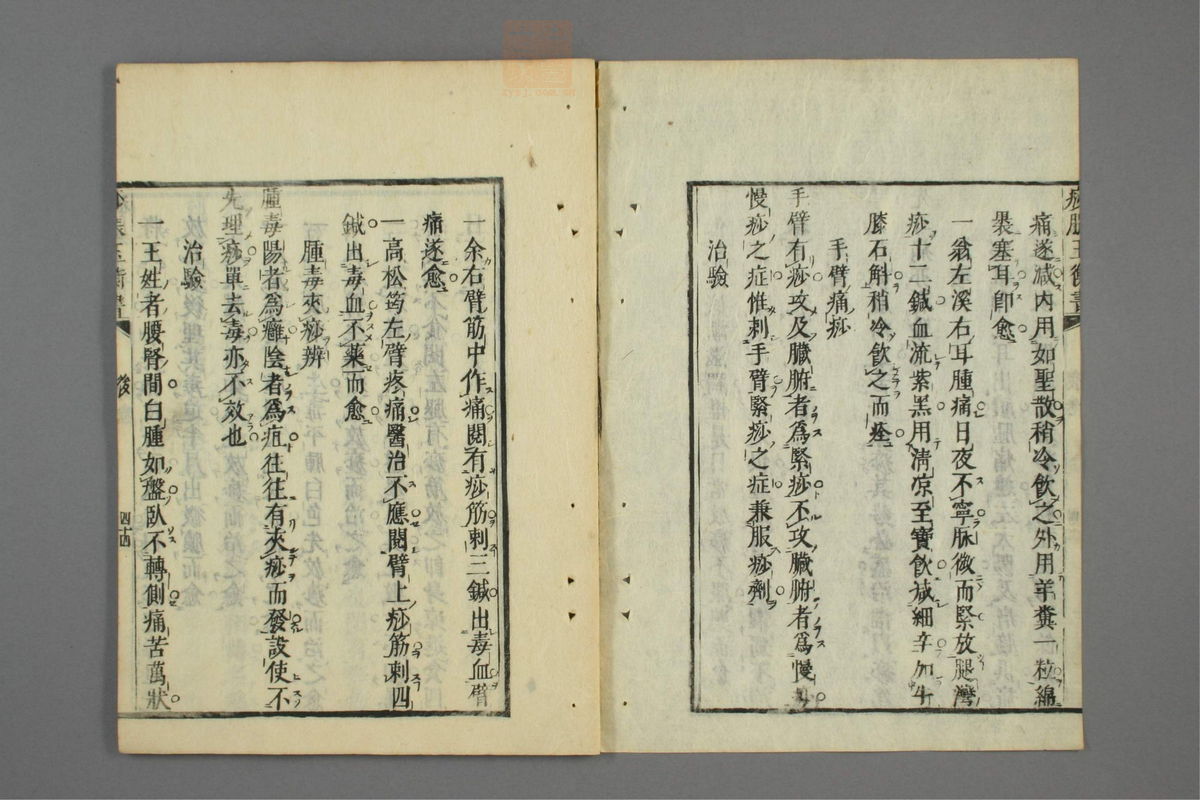 痧脹玉衡書
痛遂减內用如聖散稍冷飲之外用羊糞一粒綿
裹塞耳卽愈
一翁左溪右耳腫痛日夜不寧脉微而緊放腿灣
痧十二鍼血流紫黑用淸凉至寶飲减細辛加牛
膝石斛稍冷飲之而痊
手臂痛痧
手臂有痧攻及臟腑者爲緊痧不攻臟腑者爲慢痧
慢痧之症惟刺手臂緊痧之症兼服痧劑
治驗
一余右臂筋中作痛閱有痧筋刺三鍼出毒血臂
痛遂愈
一高松筠左臂疼痛醫治不應閱臂上痧筋刺四
鍼出毒血不藥而愈
腫毒夾痧辨
腫毒陽者爲癰陰者爲疽往往有夾痧而發設使不
先理痧單去毒亦不效也
治驗
一王姓者腰腎間白腫如盤臥不轉側痛苦萬狀
痧脹玉衡書
後
四十四
zysj.com.cn